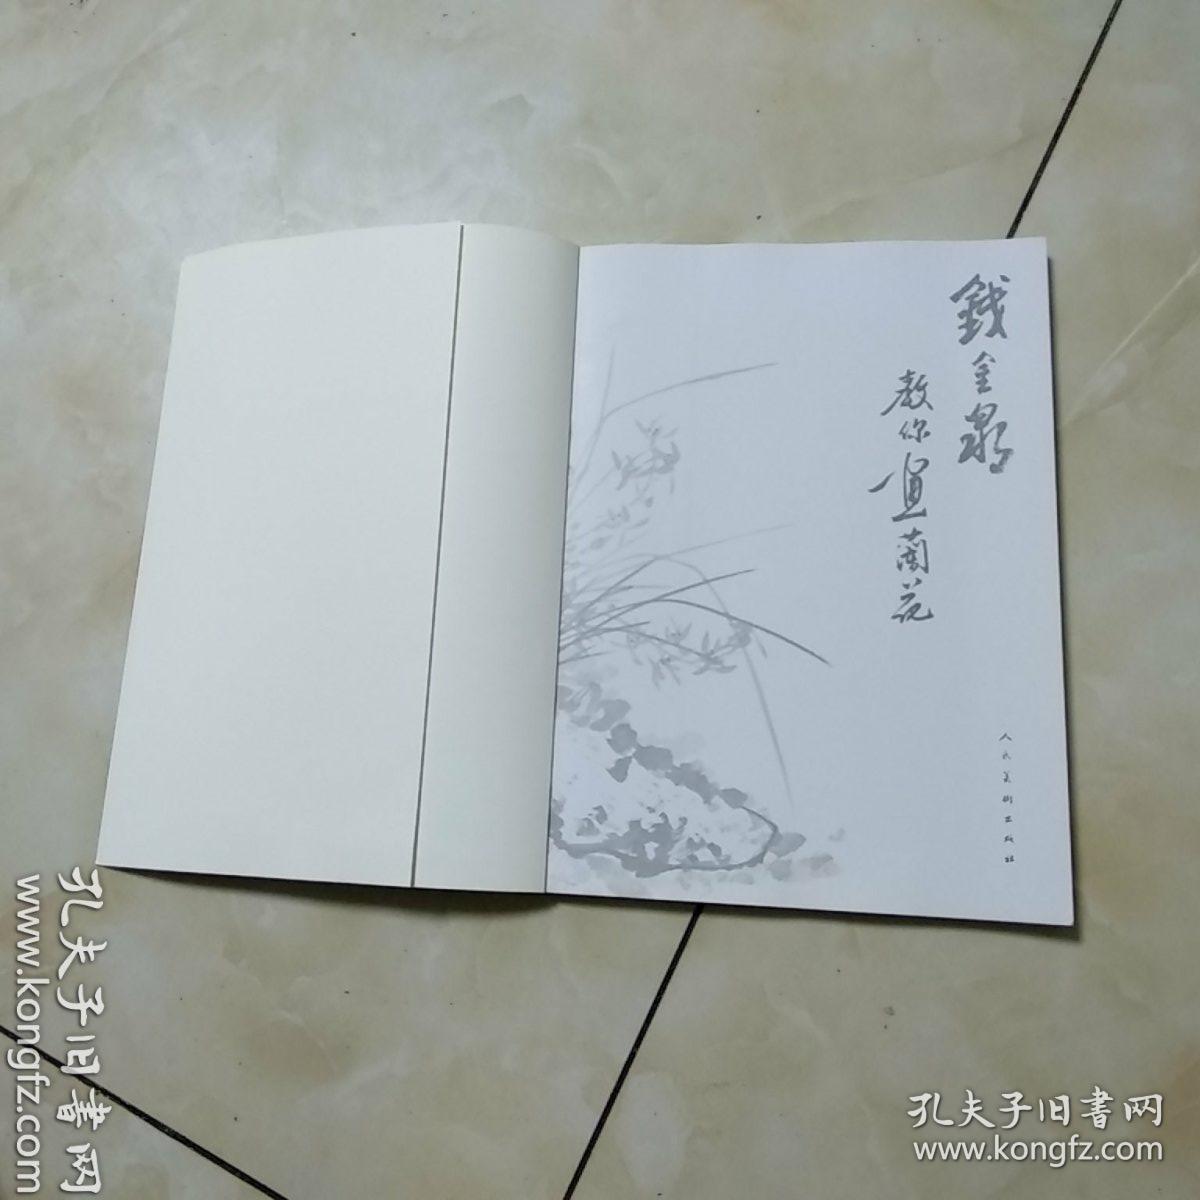 錢金泉
教你画蘭花
人民美術出版社
孔夫子旧書网
www.kongfz.com
孔夫子旧書网
www.kongfz.com